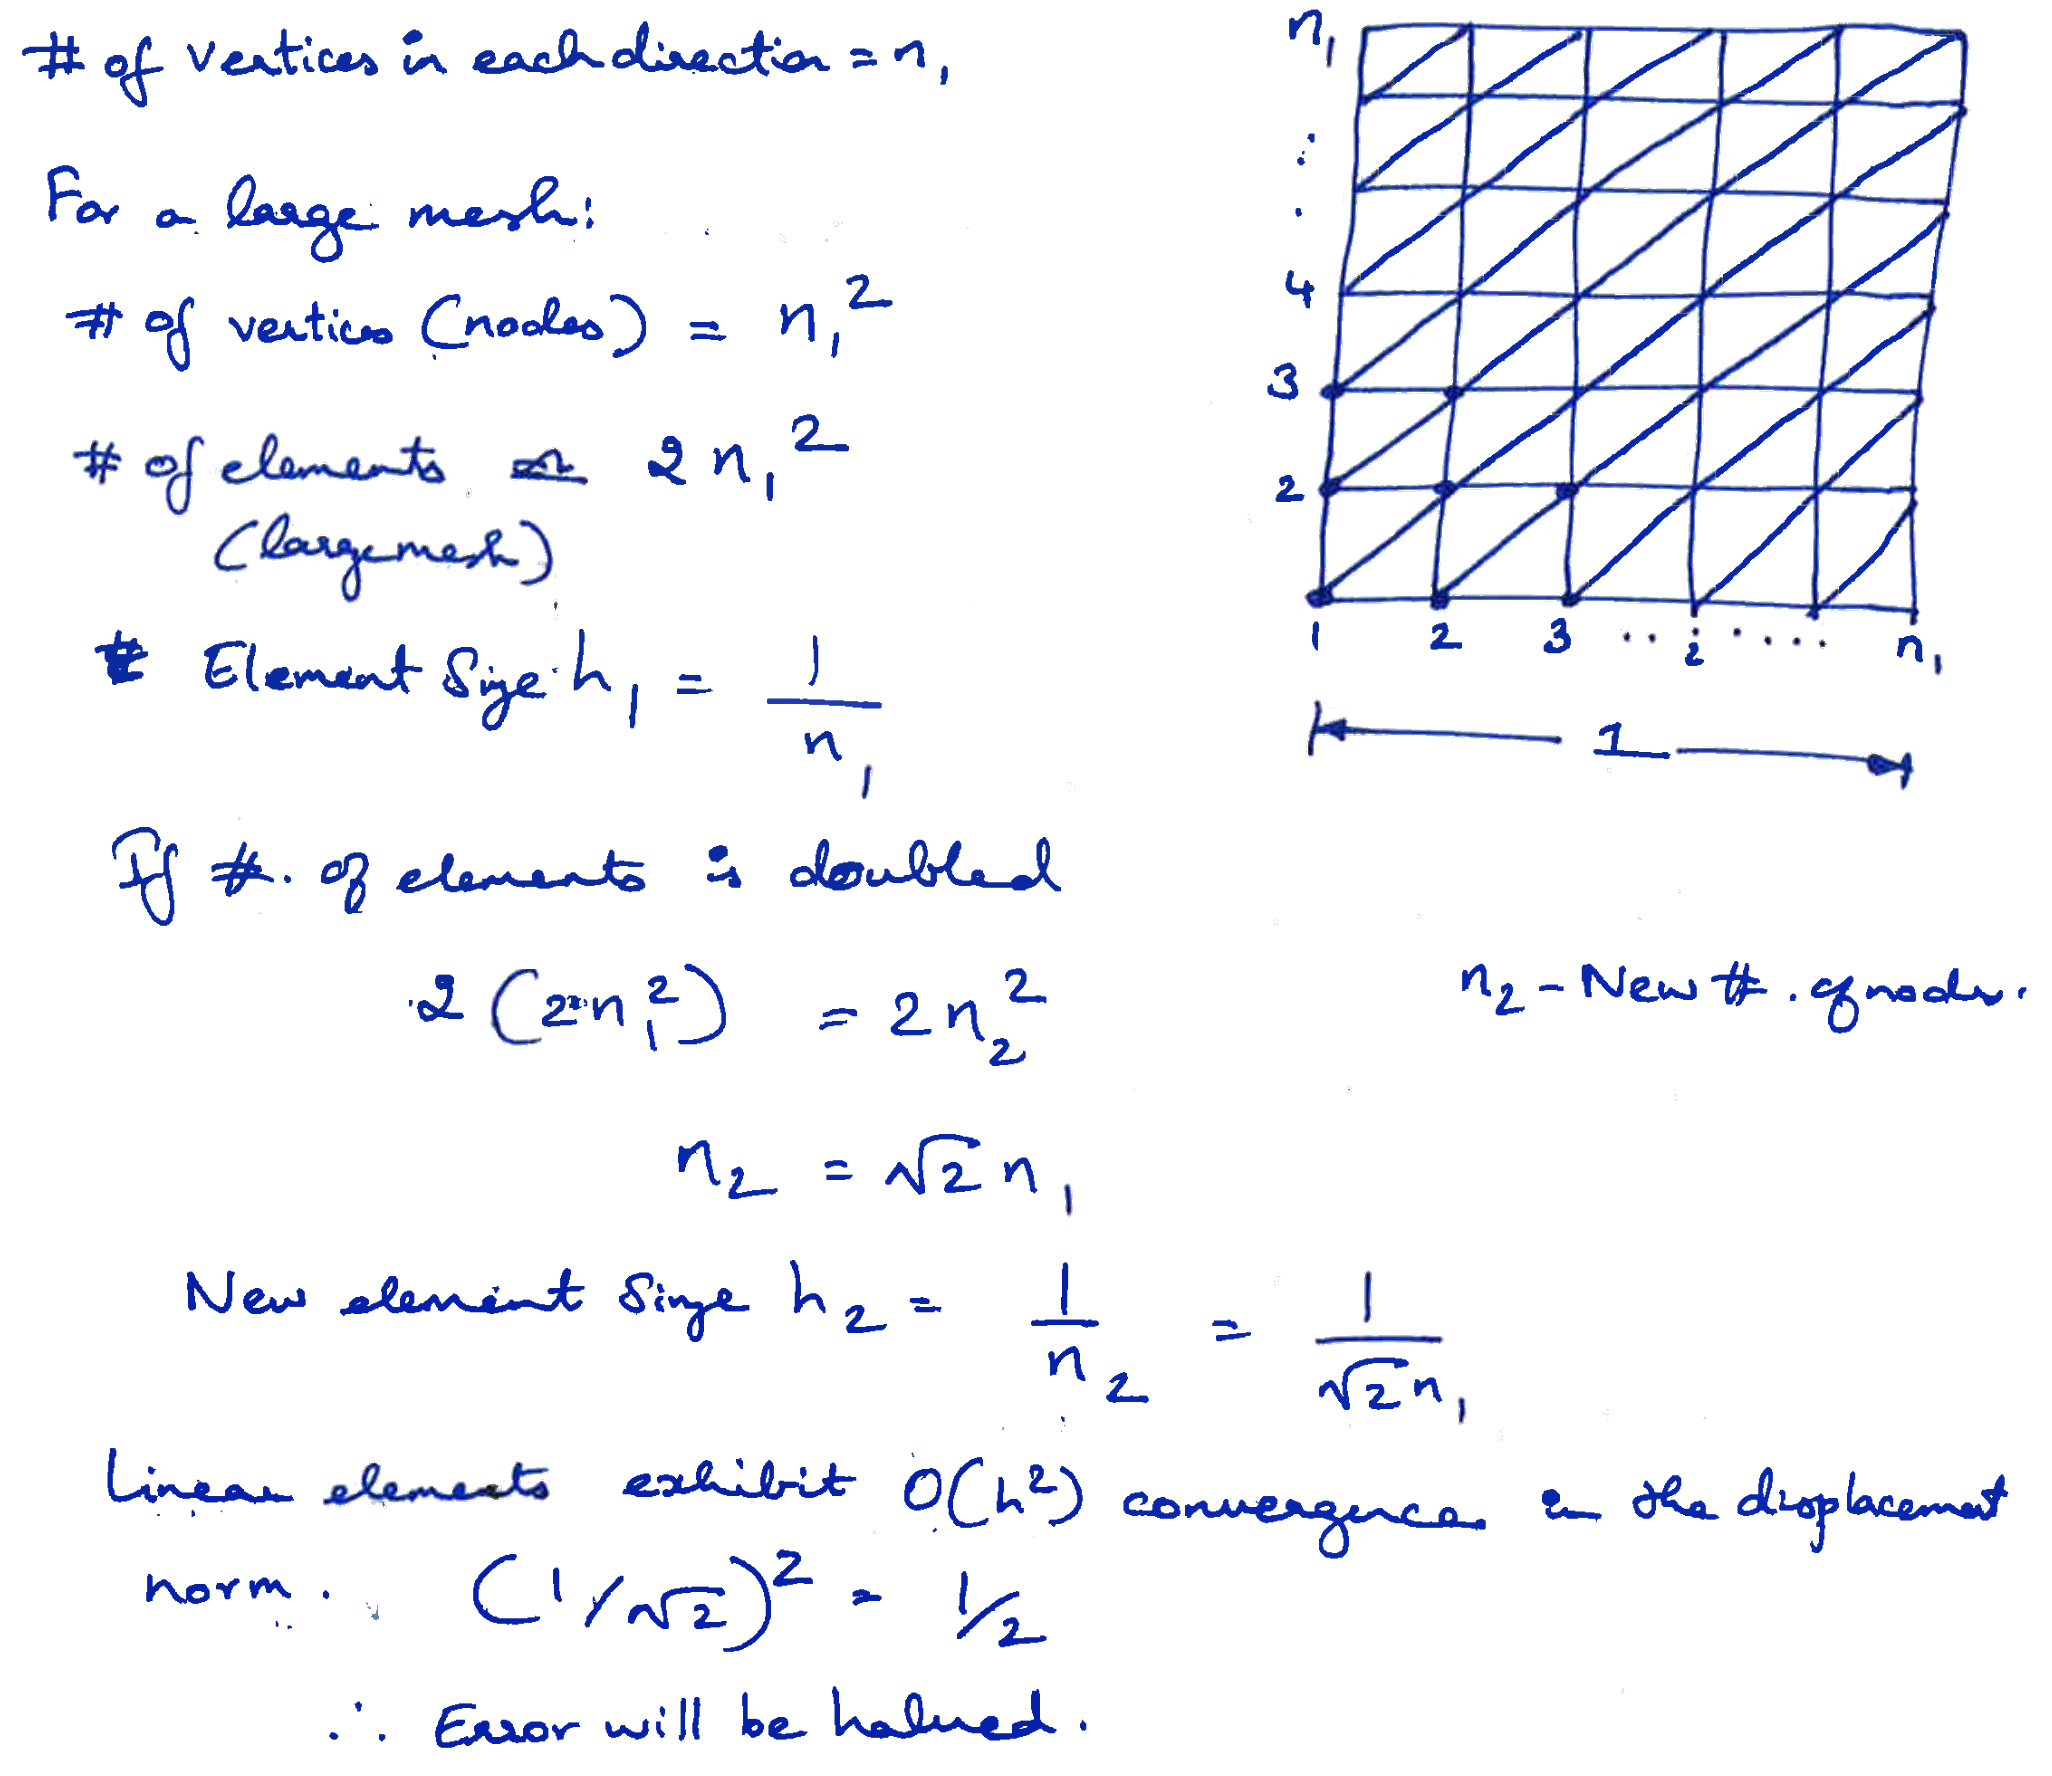 # of vertices in each direction = n₁
For a large mesh:
# of vertices (nodes) = n₁²
# of elements ≃ 2 n₁²
(large mesh)
Element Size h₁ = 1/n₁
n₁
4
3
2
1 2 3 .. i ..... n₁
1
If #. of elements is doubled
2 (2 n₁²) = 2 n₂²
n₂ - New #. of nodes.
n₂ = √2 n₁
New element Size h₂ = 1/n₂ = 1/√2 n₁
Linear elements exhibit O(h²) convergence in the displacement
norm. (1/√2)² = 1/2
∴ Error will be halved.